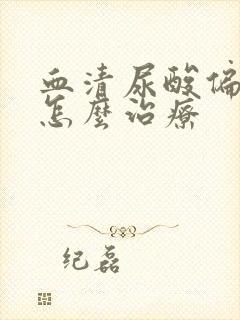 血清尿酸偏
怎麼治療
纪磊